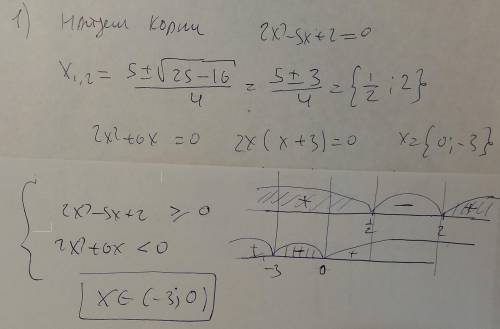 1) Найдем корни 2x²-5x+2=0
X₁,₂ = (5±√(25-16))/4 = (5±3)/4 = {1/2 ; 2}
2x²+6x =0 2x(x+3)=0 x={0;-3}
{ 2x²-5x+2 ≥ 0
2x²+6x <0
X∈(-3;0)
+ - +
1/2 2
+ +
-3 0